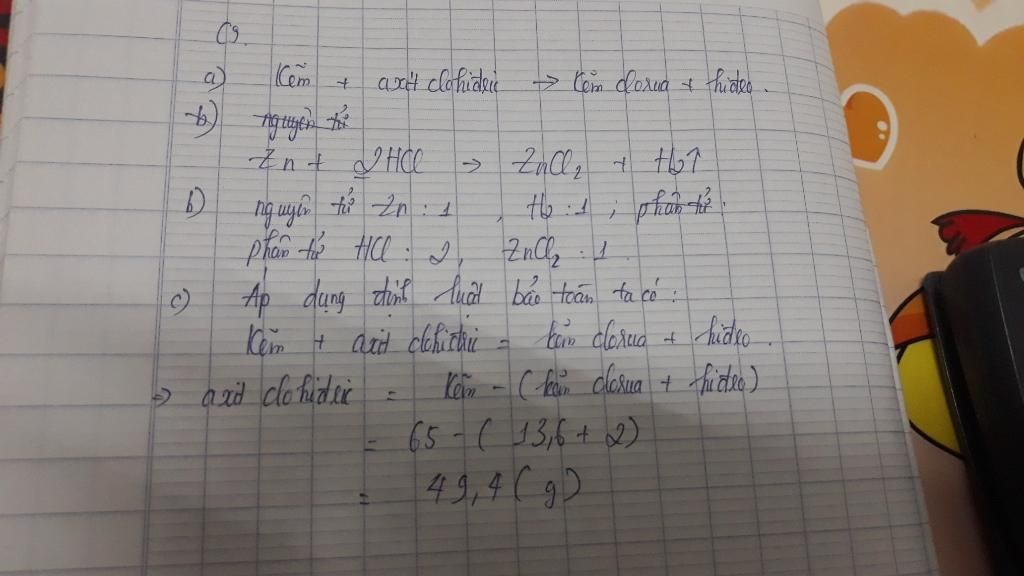 C9.
a) Kẽm + axit clohiđric → Kẽm clorua + hiđro.
b) nguyên tử
Zn + 2HCl → ZnCl2 + H2↑
b) nguyên tử Zn : 1 , H2 : 1 ; phân tử :
phân tử HCl : 2, ZnCl2 : 1.
c) Áp dụng định luật bảo toàn ta có :
Kẽm + axit clohiđric = kẽm clorua + hiđro.
=> axit clohiđric = Kẽm - ( kẽm clorua + hiđro)
= 65 - ( 13,6 + 2)
= 49,4 ( g )